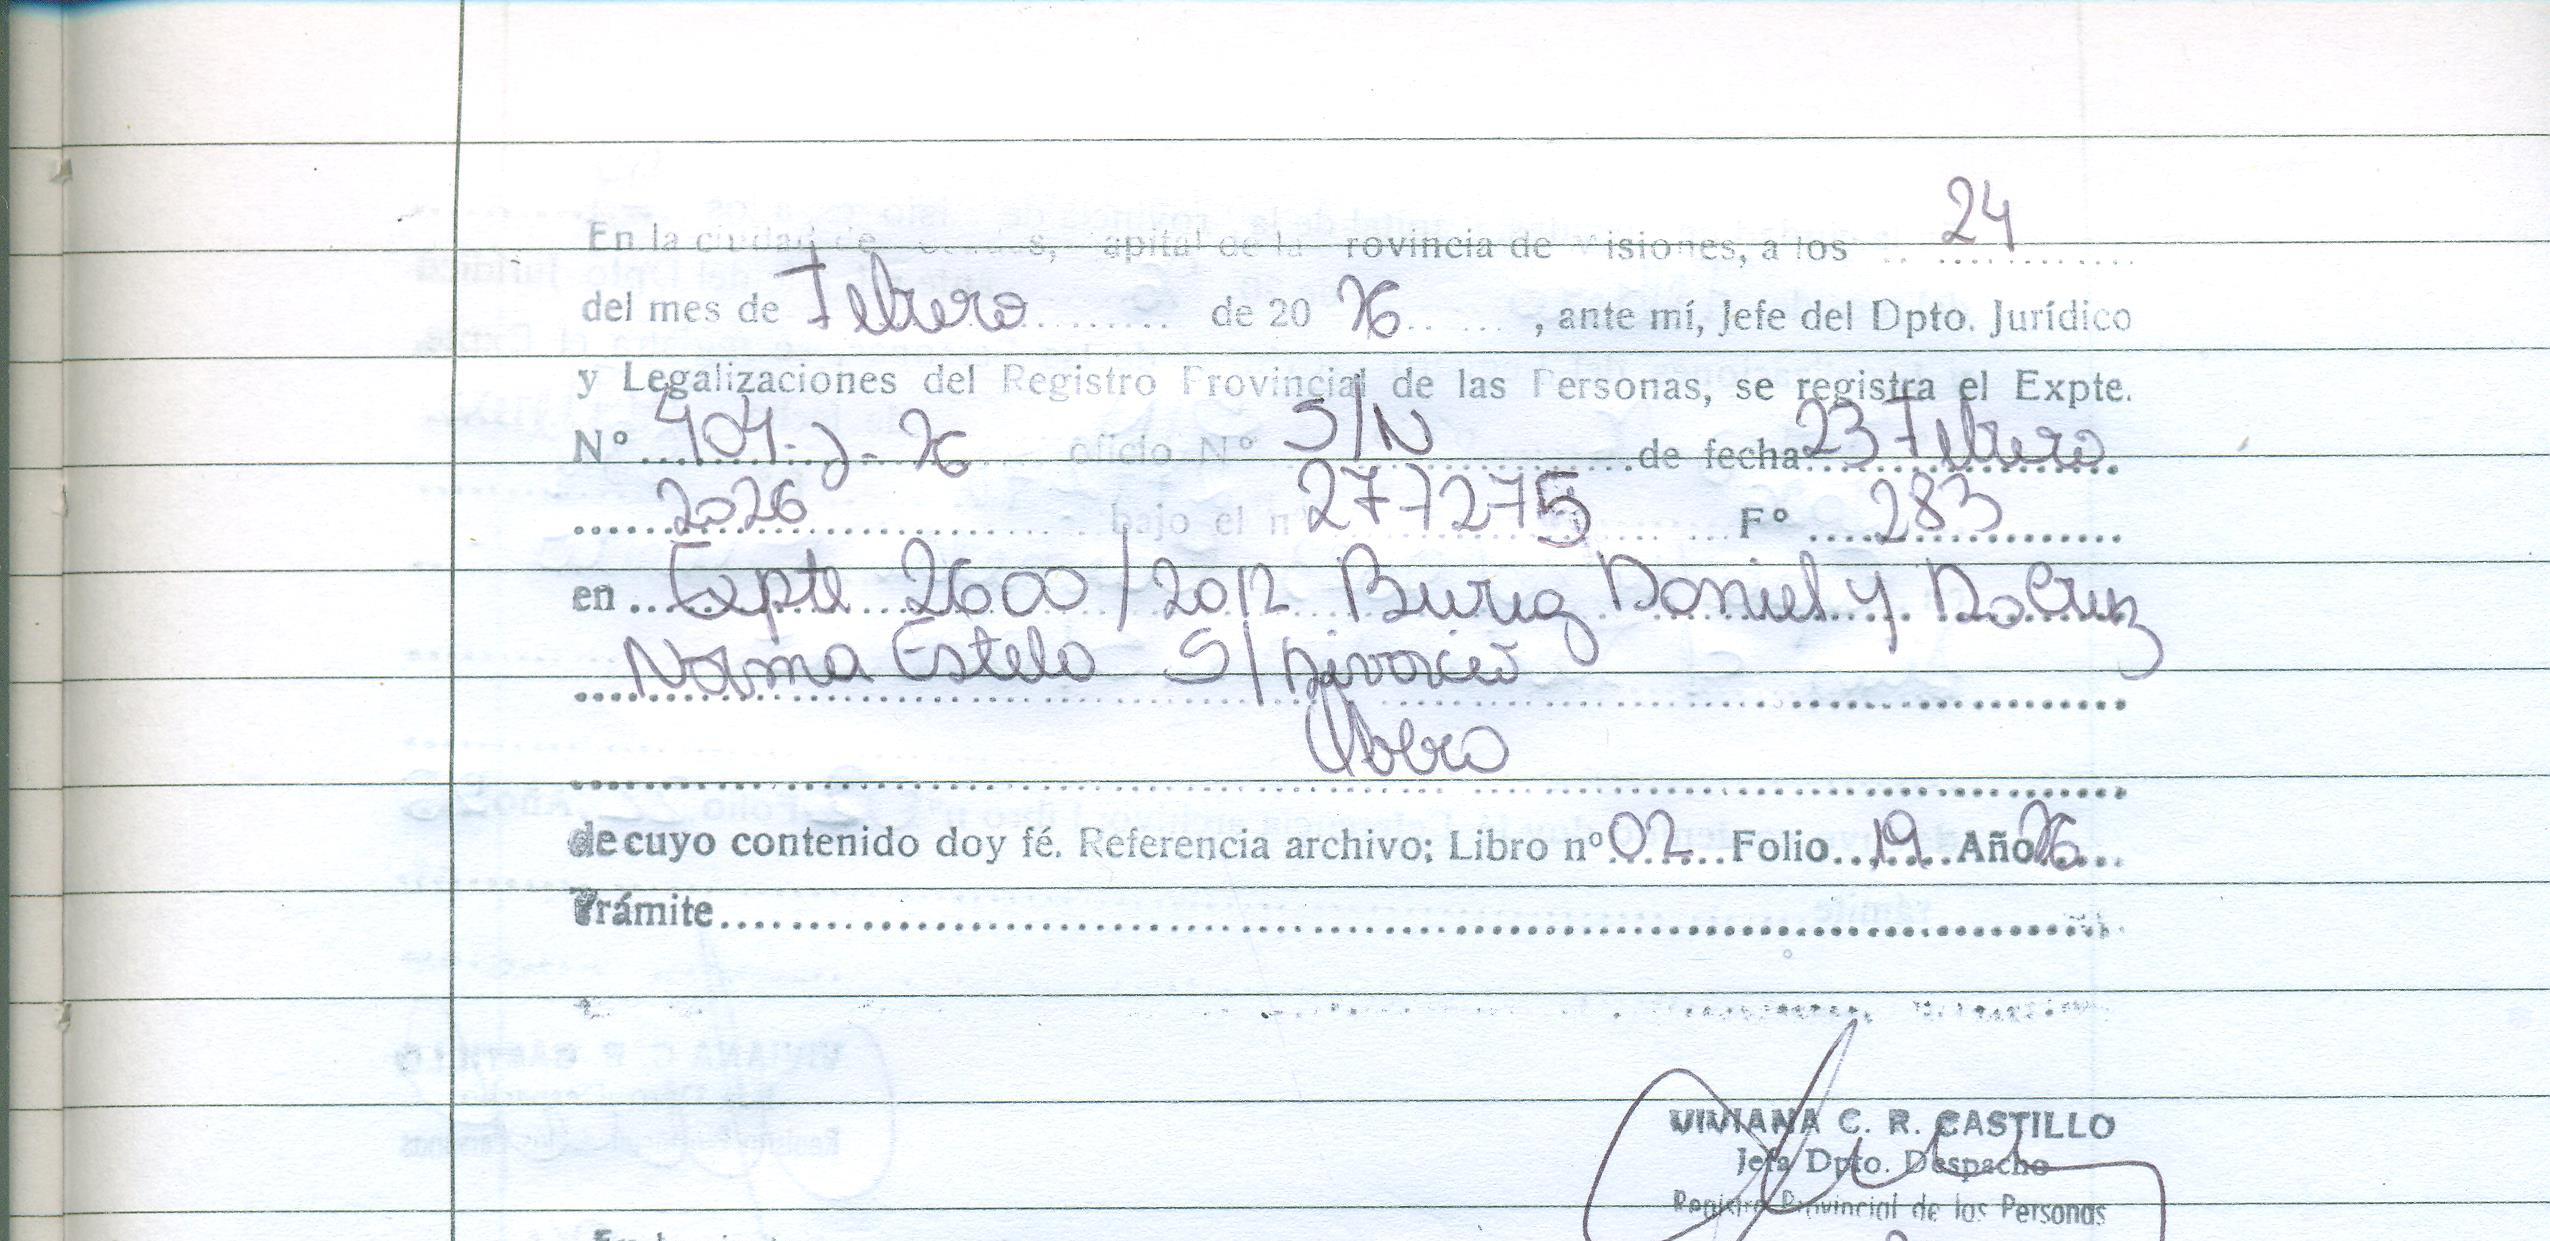 En la ciudad de Posadas, Capital de la Provincia de Misiones, a los 24
del mes de Febrero de 20 26, ante mí, Jefe del Dpto. Jurídico
y Legalizaciones del Registro Provincial de las Personas, se registra el Expte.
Nº 404-J-26 oficio Nº S/N de fecha 23 Febrero
2026 bajo el nº 277275 Fº 283
en Expte 2600/2012 Buriq Daniel y Da Cruz
Norma Estela S/ Divorcio
Obera
de cuyo contenido doy fé. Referencia archivo; Libro nº 02 Folio 19 Año 26
Trámite
VIVIANA C. R. CASTILLO
Jefa Dpto. Despacho
Registro Provincial de las Personas